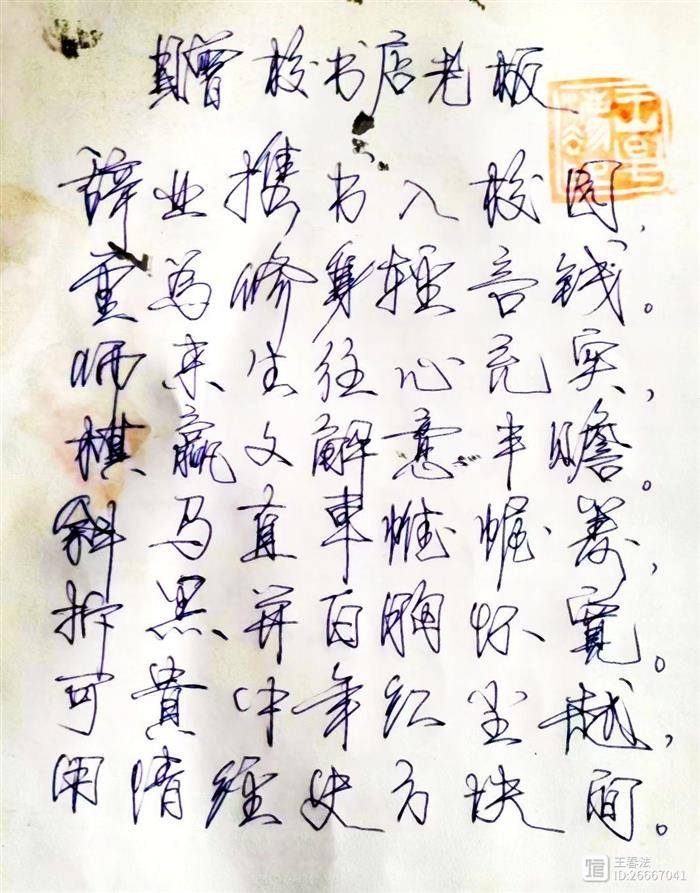 赠校书店老板
辞业携书入校园，
重为修身轻言钱。
师来生往心充实，
棋赢文解意丰赡。
斜马直车帷幄算，
拆黑并白胸怀宽。
可贵中年红尘越，
闲情经史方块间。
王春法
ID:26667041